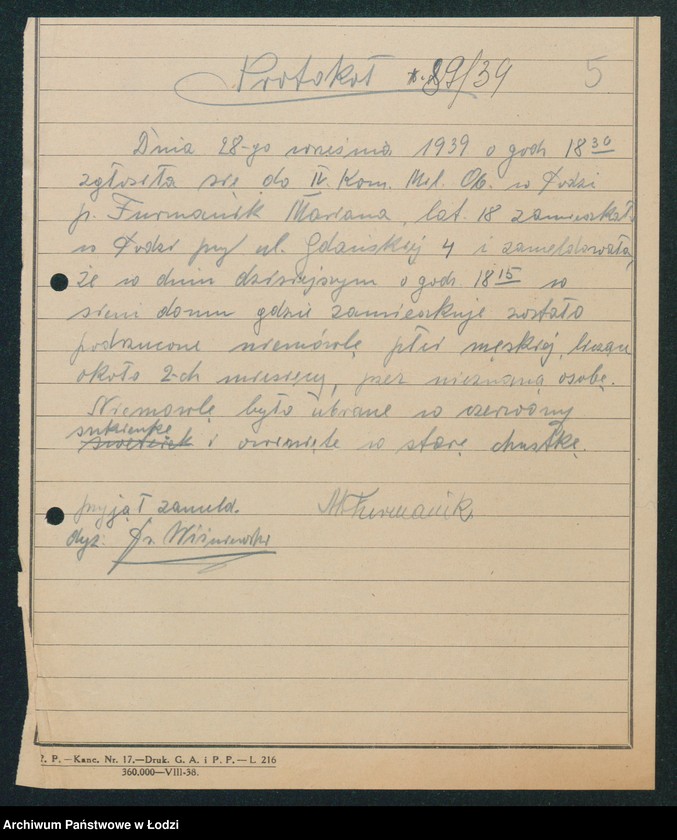 Protokół n. 89/39 5
Dnia 28-go września 1939 o godz 18 30
zgłosiła się do IV. Kom. Mil. Ob. w Łodzi
p. Furmanik Mariana, lat 18 zamieszkał.
w Łodzi przy ul. Gdańskiej 4 i zameldowała,
że w dniu dzisiejszym o godz. 18 15 w
sieni domu gdzie zamieszkuje zostało
podrzucone niemówlę płci męskiej, liczące
około 2-ch miesięcy, przez nieznaną osobę.
Niemówlę było ubrane w czerwony
sukienkę
sweterek i owinięte w starą chustkę.
przyjął zameld. MFurmanik
dyż. Fr. Wiśniewski
P. P. — Kanc. Nr. 17. — Druk. G. A. i P. P. — L 216
360.000—VIII-38.
Archiwum Państwowe w Łodzi